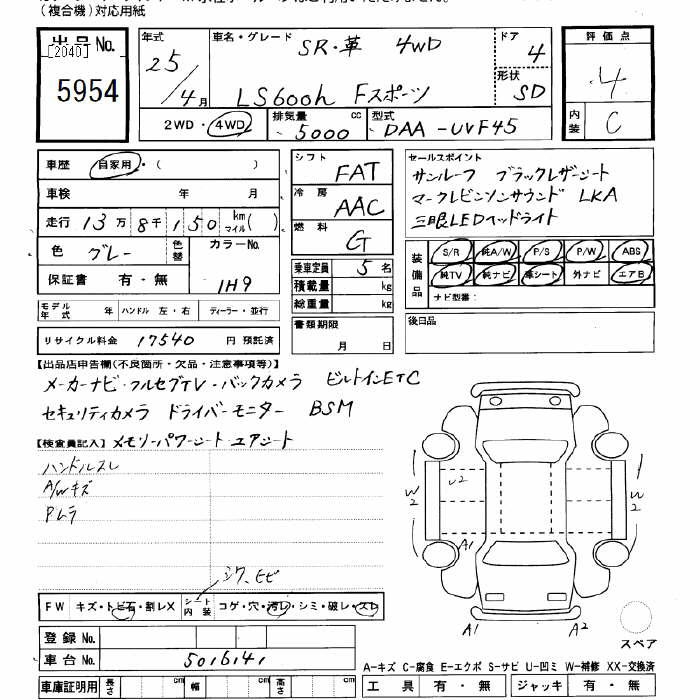 (複合機)対応用紙
出品No.
[2040]
5954
年式
25/4月
車名・グレード
SR・革 4WD
LS600h Fスポーツ
ドア
4
形状
SD
評価点
4
内装
C
2WD・4WD
排気量 5000 cc
型式 DAA-UVF45
車歴 自家用・( )
車検 年 月
走行 13万8千150 km マイル( )
色 グレー 色替
カラーNo. 1H9
保証書 有・無
モデル年式 年 ハンドル 左・右 ディーラー・並行
リサイクル料金 17540 円 預託済
シフト FAT
冷房 AAC
燃料 G
乗車定員 5名
積載量 kg
総重量 kg
書類期限
月 日
セールスポイント
サンルーフ ブラックレザーシート
マークレビンソンサウンド LKA
三眼LEDヘッドライト
装備品
S/R 純A/W P/S P/W ABS
純TV 純ナビ 革シート 外ナビ エアB
ナビ型番:
後日品
【出品店申告欄(不良箇所・欠品・注意事項等)】
メーカーナビ・フルセグTV・バックカメラ ビルトインETC
セキュリティカメラ ドライバーモニター BSM
【検査員記入】 メモリーパワーシート エアシート
ハンドルスレ
A/Wキズ
Pムラ
シワ、ヒビ
FW キズ・トビ石・割レX シート内装 コゲ・穴・汚レ・シミ・破レ・スレ
登録No.
車台No. 5016141
車庫証明用 長さ cm 幅 cm 高さ cm
U2
W2
W2
A1
A1
A2
スペア
A-キズ C-腐食 E-エクボ S-サビ U-凹ミ W-補修 XX-交換済
工具 有・無 ジャッキ 有・無